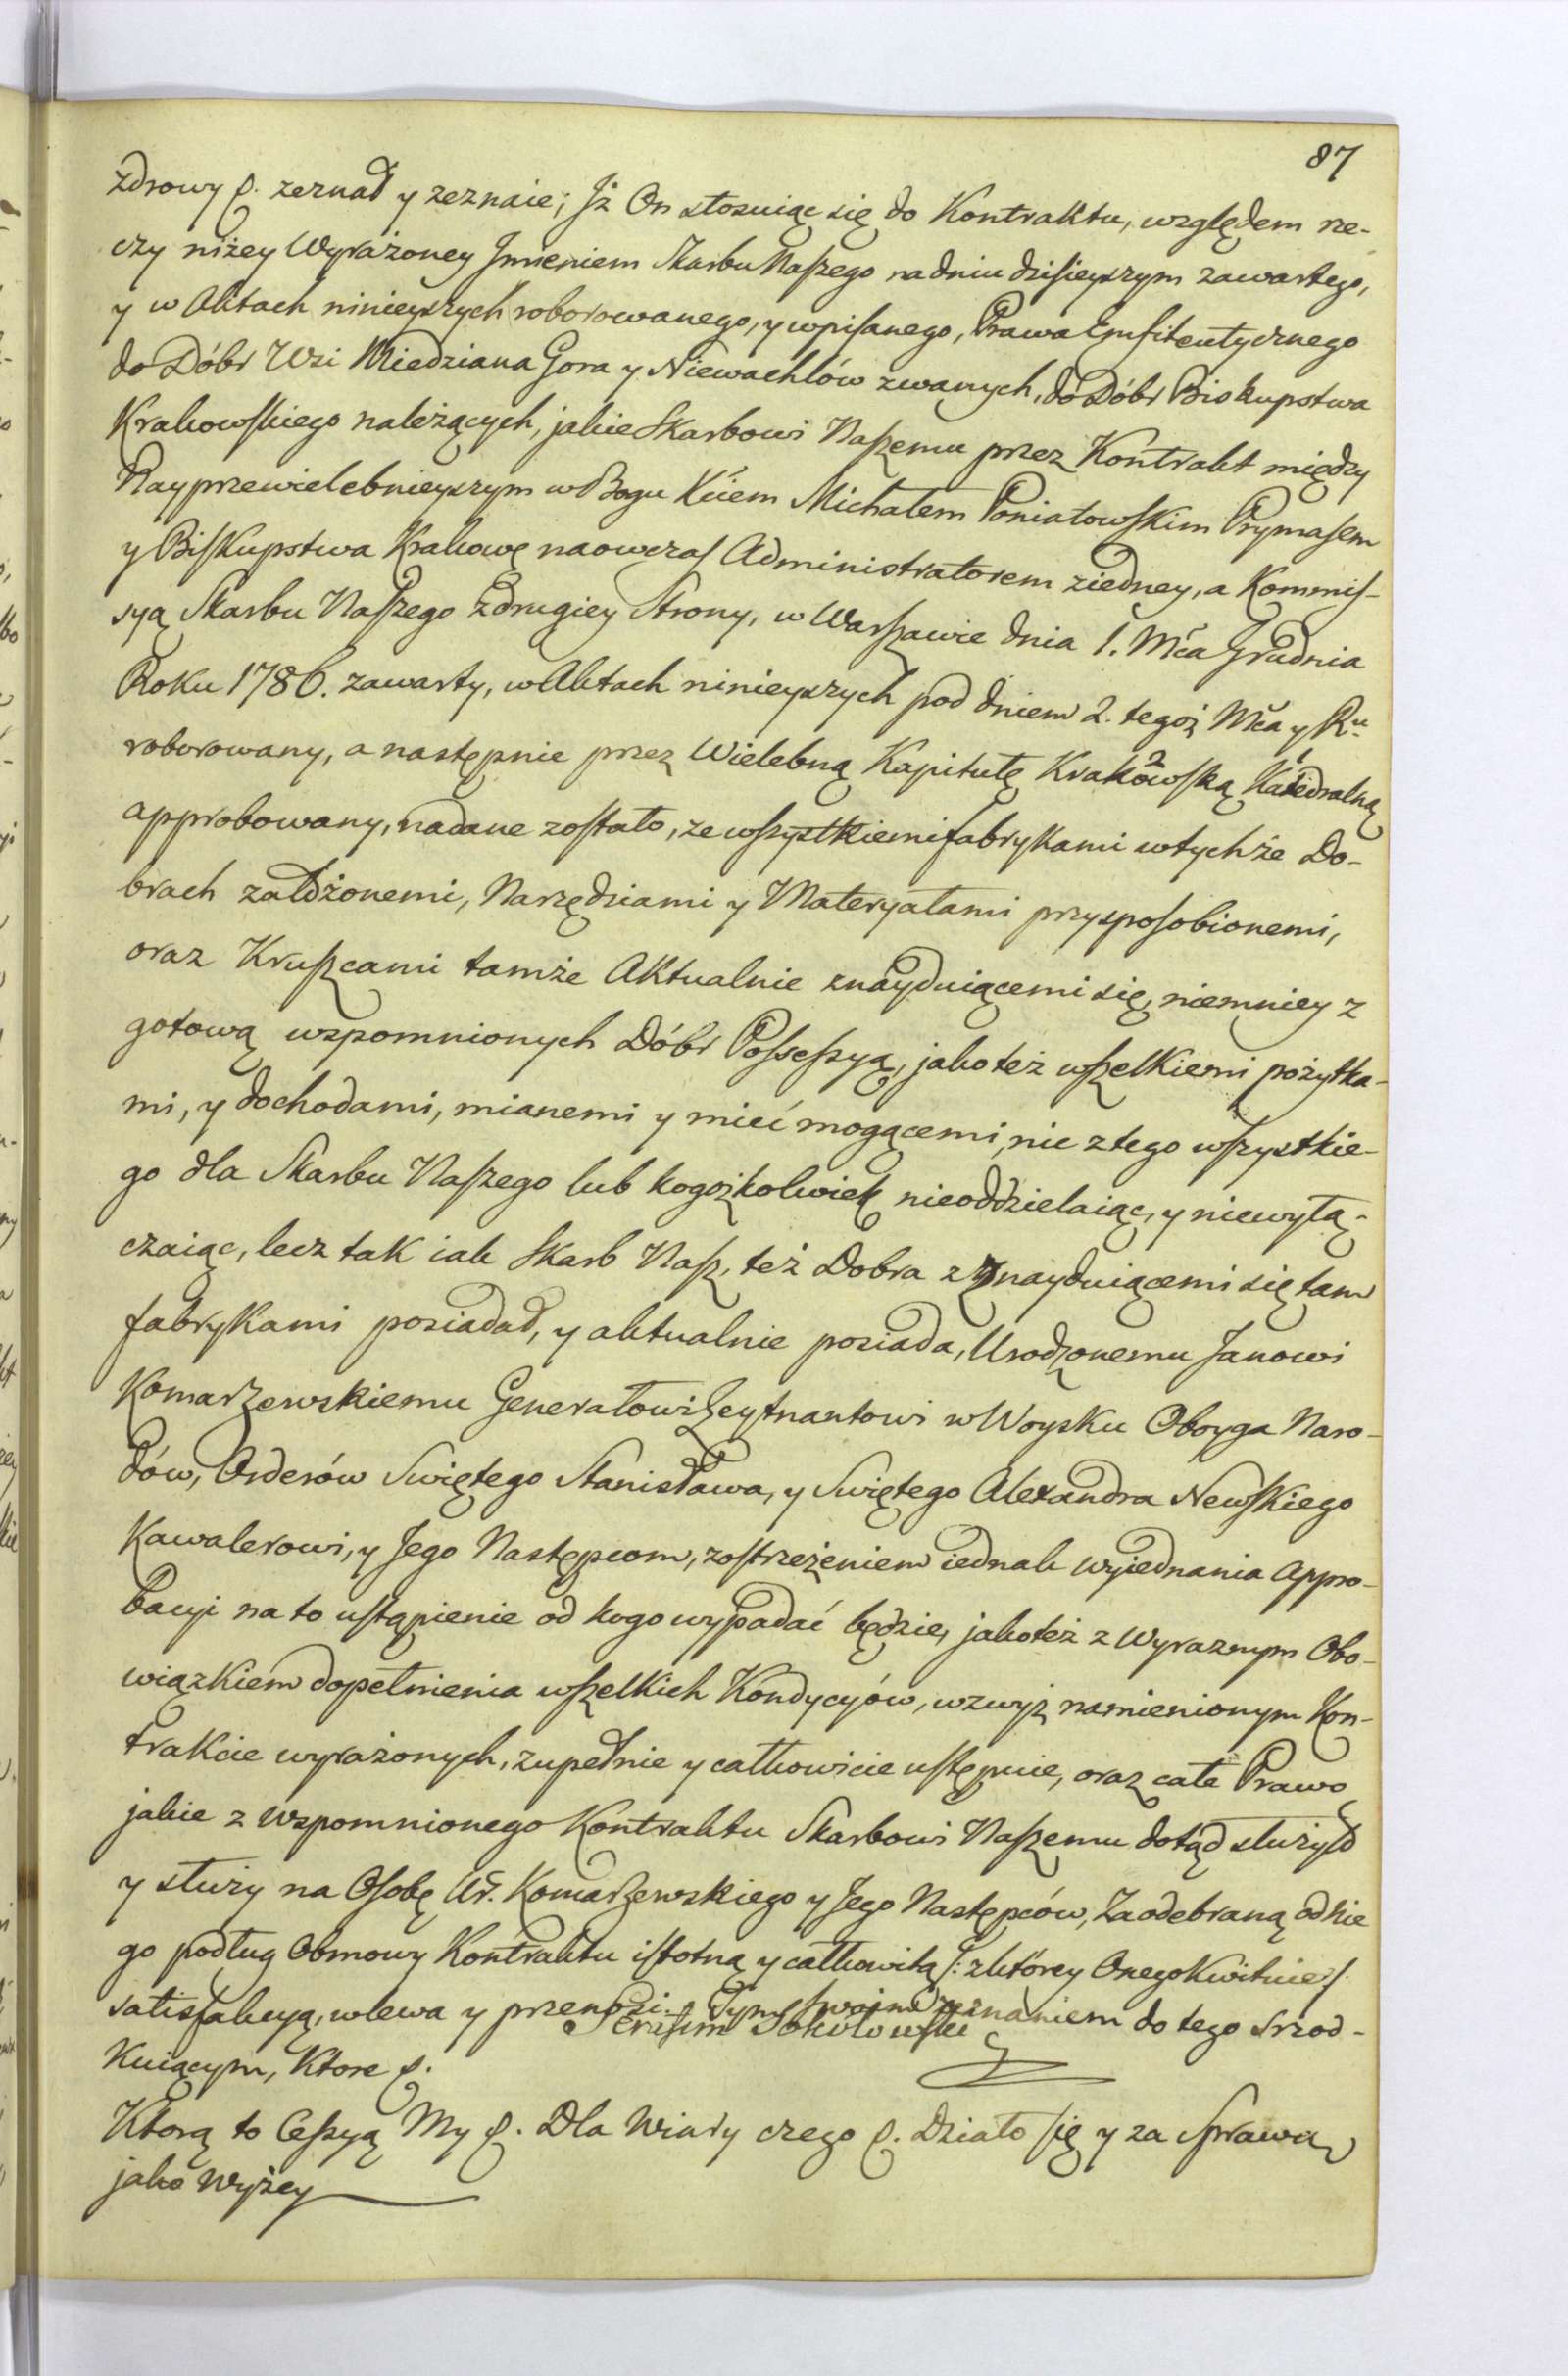 87
zdrowy &. zeznał y zeznaie; Jż On stosuiąc się do Kontraktu, względem rze-
czy niżey Wyrażoney Jmieniem Skarbu Naſzego na dniu dziſieyszym zawartego,
y w Aktach ninieyszych roborowanego, y wpiſanego, Prawa Emfiteutycznego
do Dóbr Wsi Miedziana Gora y Niewachlów zwanych, do Dóbr Biskupstwa
Krakowſkiego należących, jakie Skarbowi Naſzemu przez Kontrakt między
Nayprzewielebnieyszym w Bogu Xciem Michałem Poniatowſkim Prymaſem
y Biſkupstwa Krakowę naowczaſ Administratorem ziedney, a Kommiſ-
syą Skarbu Naſzego z drugiey Strony, w Warſzawie dnia 1. Mca Grudnia
Roku 1786. zawarty, w Aktach ninieyszych pod dniem 2. tegoż Mca y Ru
roborowany, a następnie przez Wielebną Kapitułę Krakowſką Katedralną
approbowany, nadane zoſtało, ze wſzystkiemi fabrykami w tychże Do-
brach założonemi, Narzędziami y Materyałami przyspoſobionemi,
oraz Kruſzcami tamże Aktualnie znayduiącemi się, niemniey z
gotową wspomnionych Dóbr Poſseſzyą, jakoteż wſzelkiemi pożytka-
mi, y dochodami, mianemi y mieć mogącemi, nic z tego wſzystkie-
go dla Skarbu Naſzego lub kogożkolwiek nieoddzielaiąc, y niewyłą-
czaiąc, lecz tak iak Skarb Naſz, też Dobra z znayduiącemi się tam
fabrykami posiadał, y aktualnie posiada, Urodzonemu Janowi
Komarzewskiemu Generałowi Leytnantowi w Woysku Oboyga Naro-
dów, Orderów Swiętego Stanisława, y Swiętego Alexandra Newſkiego
Kawalerowi, y Jego Następcom, zoſtrzeżeniem iednak wyiednania Appro-
bacyi na to uſtąpienie od kogo wypadać będzie, jakoteż z Wyraznym Obo-
wiązkiem dopełnienia wſzelkich Kondycyów, wzwyż namienionym Kon-
trakcie wyrażonych, zupełnie y całkowicie uſtępuie, oraz całe Prawo
jakie z Wspomnionego Kontraktu Skarbowi Naſzemu dotąd służyło
y służy na Oſobę Ur. Komarzewskiego y Jego Następców, Za odebraną od nie
go podług Obmowy Kontraktu iſtotną y całkowitą /: z którey Onego Kwituie /:
satisfakcyą, wlewa y przenosi. Tym swoim zeznaniem do tego srzod-
Sokołowſki
Kuiącym, Ktore &.
Którą to Ceſzyą My &. Dla Wiary czego &. Działo ſię y za Sprawą
jako Wyżey